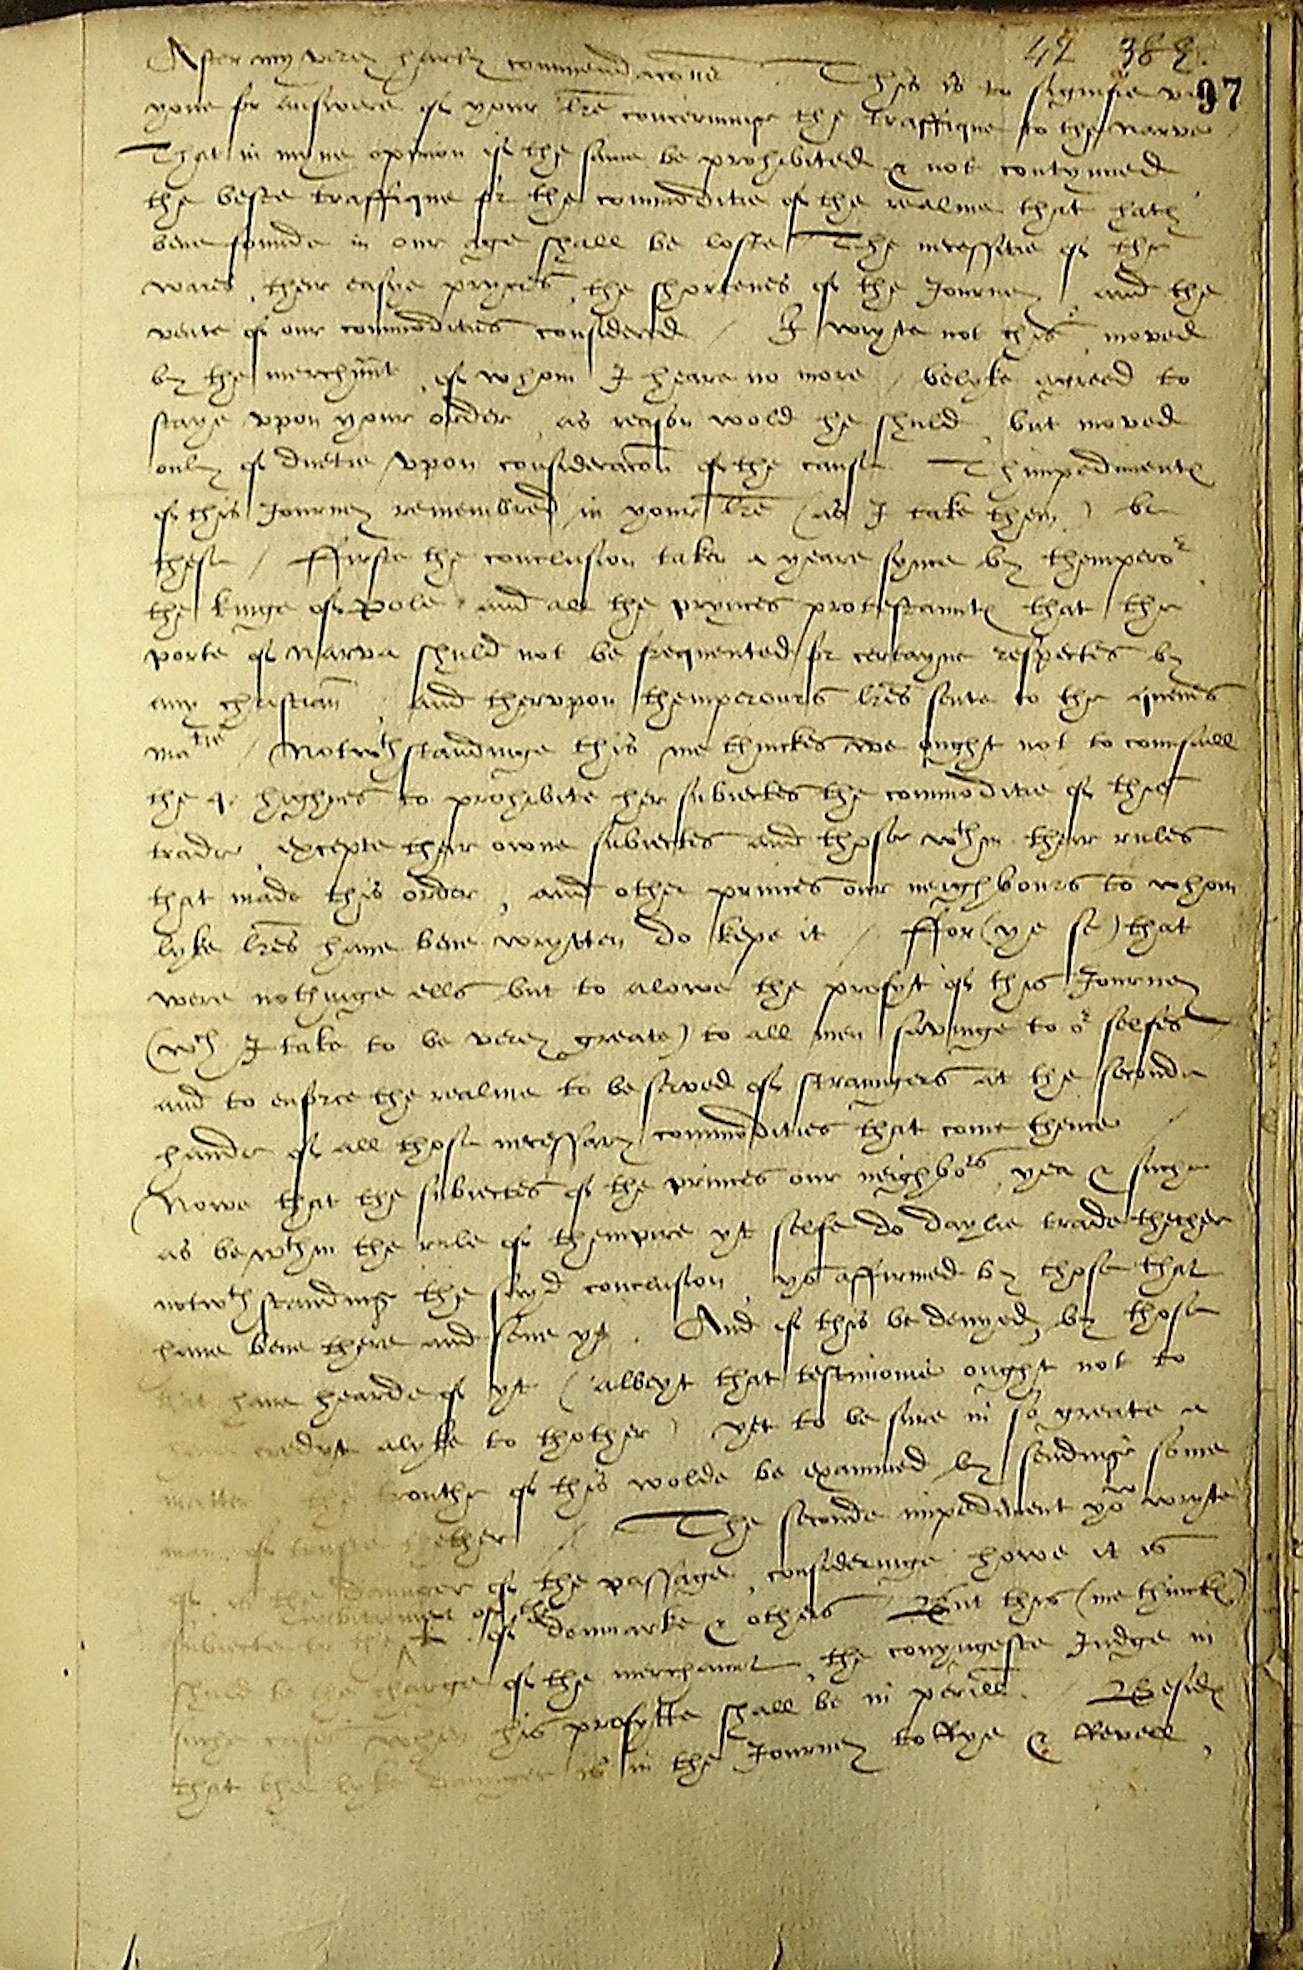 47 388.
97
After my verey hartey commendacons This is to signifie
youe for answere of your lre concerninge the traffique to the Narve /
That in myne opinion if the same be prohibited & not contynued
the beste traffique for the commoditie of the realme that hath
bene founde in our age shall be loste The necessitie of the
wares, their easye pryces, the shortenes of the Journey, and the
vente of our commodities considered / I wryte not this, moved
by the merchaunt, of whom I heare no more / belyke agreed to
staye vpon your order, as reason wold he shuld, but moved
only of duetie vpon consideracon of the cause Thimpedimentes
of this Journey remembred in your lre (as I take them) be
these / Ffirste the conclusion taken a yeare synce by themperor
the kinge of Pole and all the prynces protestauntes that the
porte of Narva shuld not be frequented for certayne respectes by
any christian, And thervpon themperours lres sente to the quenes
matie / Notwthstandinge this me thinckes we ought not to counsaill
the q. highnes to prohibite her subiectes the commoditie of this
trade, excepte their owne subiectes and those wthin their rules
that made this order, and other princes our neighbours to whom
lyke lres haue bene wrytten do kepe it / Ffor (ye se) that
were nothinge ells but to alowe the profyt of this Journey
(wch I take to be verey greate) to all men savinge to or selfes
and to enforce the realme to be served of straungers at the seconde
hande of all those necessary commodities that come thence /
Nowe that the subiectes of the princes our neighbors, yea & suche
as be wthin the rule of thempire yt selfe do daylie trade thether
notwthstanding the sayd conclusion, ys affirmed by those that
haue bene there and sene yt. And if this be denyed by those
that haue hearde of yt (albeyt that testimonie ought not to
credyt alyke to thother) yet to be sure in so greate a
matter the trouthe of this wolde be examined by sending some
man of truste thether / The seconde impediment yow wryte
of, is the daunger of the passage, consideringe howe it is
subiecte to the of the of Denmarke & others But this (me thinckes)
shuld be the charge of the merchaunt, the conyngeste Judge in
suche cases when his profytte shall be in perill. Besides
that the lyke daunger is in the Journey to Rye & Revell,